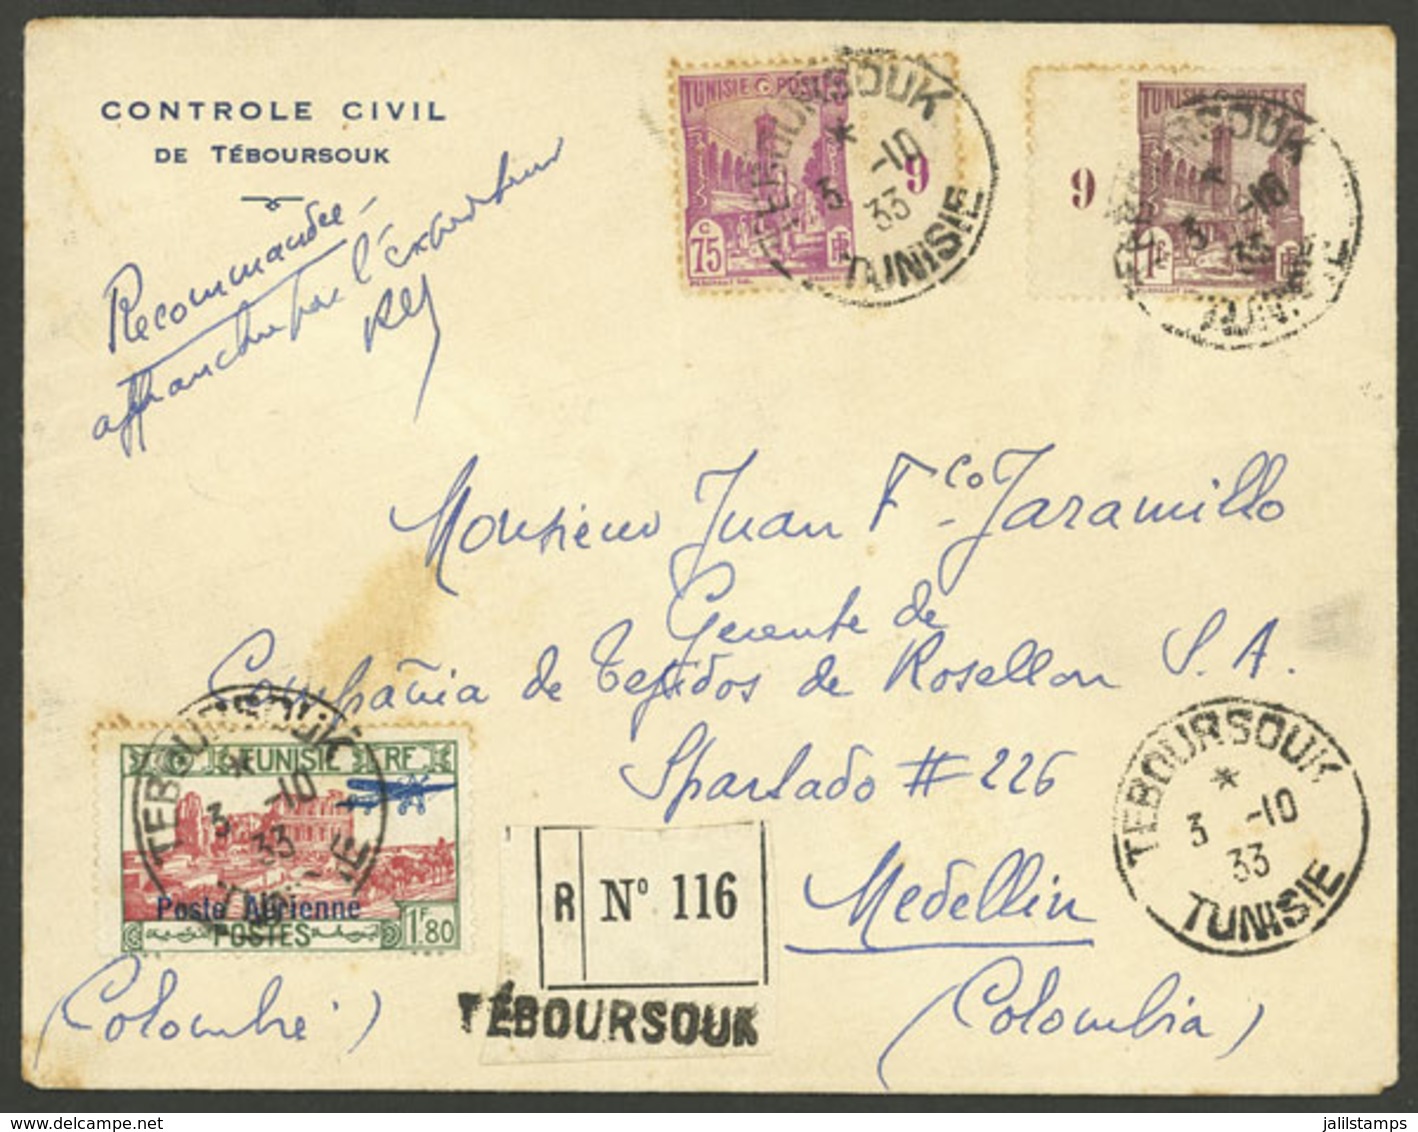 CONTROLE CIVIL
DE TÉBOURSOUK
Recommandée
affranchie par l'expéditeur
TUNISIE POSTES
75 c
RF
9
TEBOURSOUK
* 3 -10
33
TUNISIE
9
TUNISIE POSTES
1F
RF
TEBOURSOUK
* 3 -10
33
TUNISIE
Monsieur Juan Fco. Jaramillo
Gerente de
Compañia de Tejidos de Rosellon S. A.
Apartado # 226
Medellin
(Colombia)
(Colombie)
TUNISIE RF
Poste Aérienne
POSTES
1F80
TEBOURSOUK
* 3 -10
33
R Nº 116
TÉBOURSOUK
TEBOURSOUK
* 3 -10
33
TUNISIE
jalilstamps